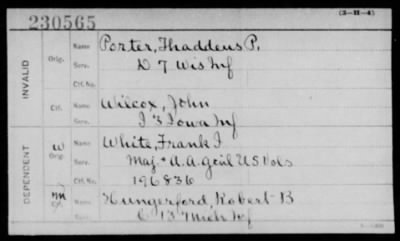 (3-H-4)
230565
INVALID
Orig. Name Porter, Thaddeus P.
Serv. D 7 Wis Inf
Ctf. No.
Ctf. Name Wilcox, John
Serv. I 3 Iowa Inf
DEPENDENT
W Orig. Name White, Frank J.
Serv. Maj + A.A. Genl US Vols
Ctf. No. 196836
M Name Hungerford, Robert B
C 13 Mich Inf